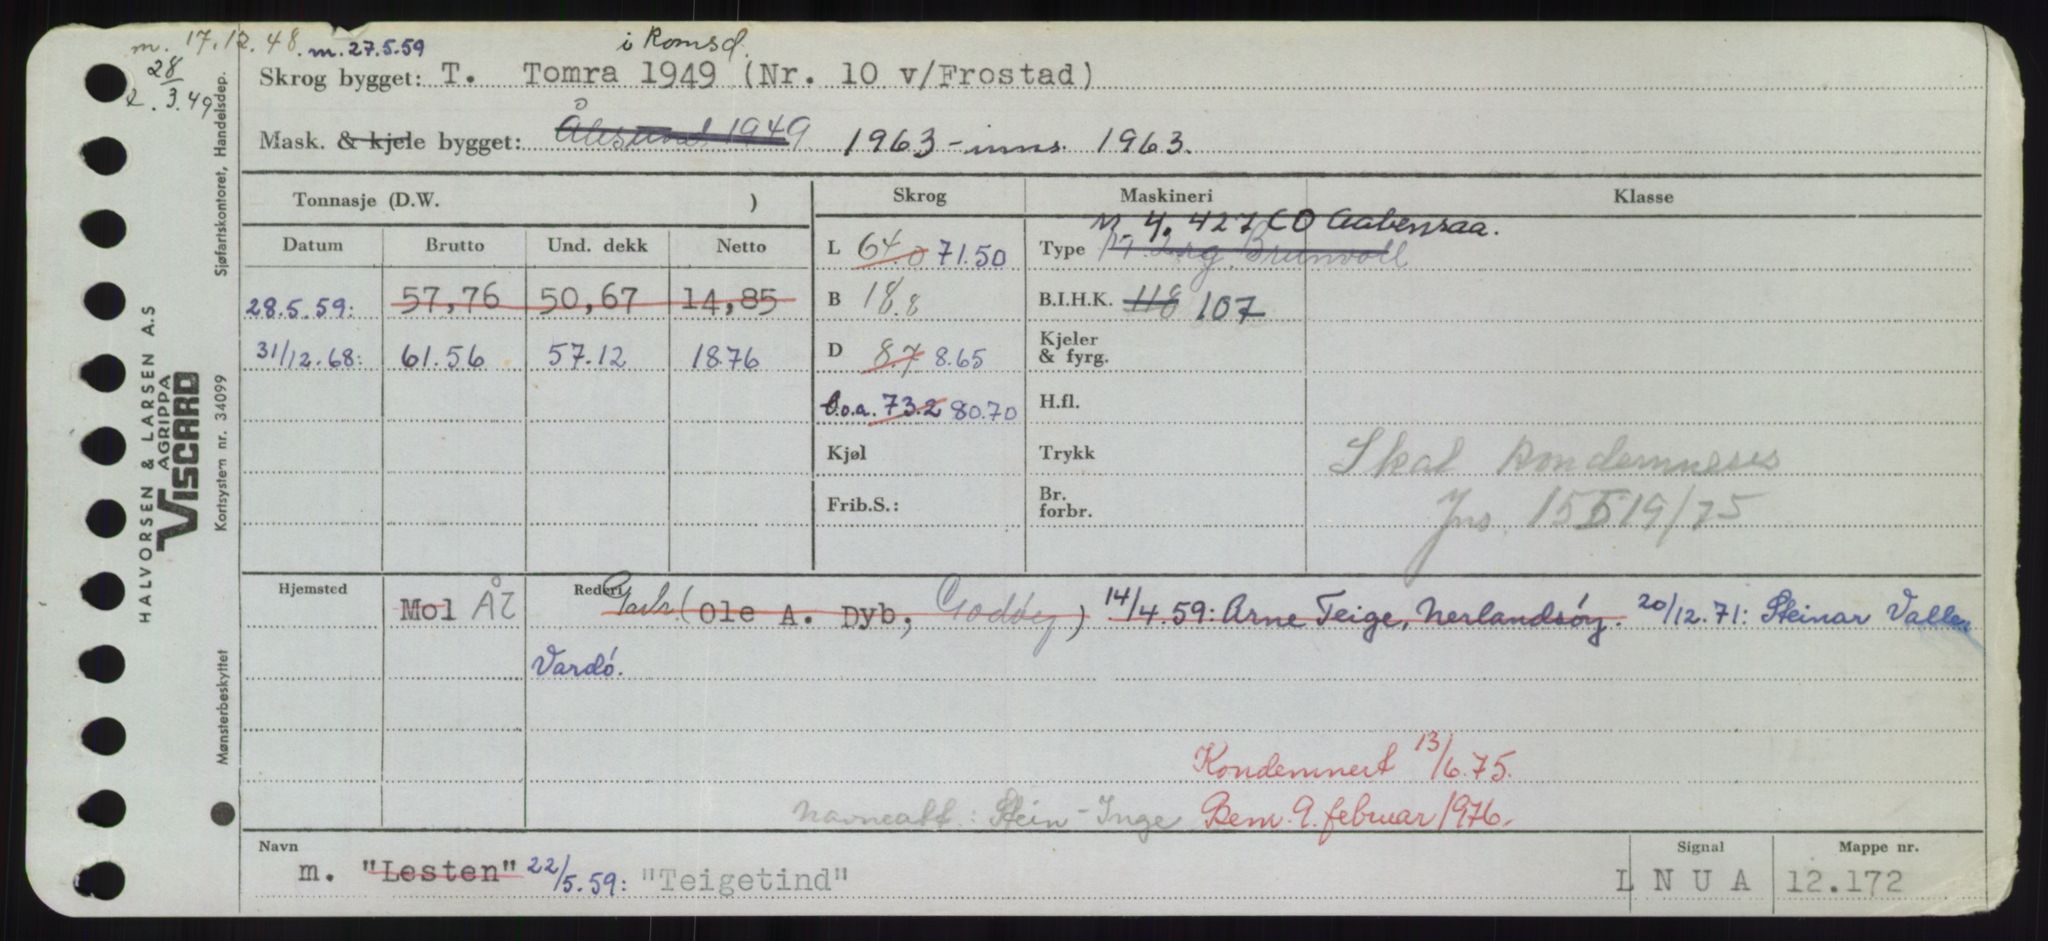 m. 17.12.48. m. 27.5.59 i Romsd.
28
2. 3.49
Skrog bygget: T. Tomra 1949 (Nr. 10 v/Frostad)
Mask. & kjele bygget: Ålesund 1949 1963 - inns. 1963.
Tonnasje (D.W. ) Skrog Maskineri Klasse
M. 4. 427 CO Aabenraa.
Datum Brutto Und. dekk Netto L 64.0 71.50 Type Brunvoll
28.5.59: 57,76 50,67 14,85 B 18.8 B.I.H.K. 118 107
31/12.68: 61.56 57.12 18.76 D 8.7 8.65 Kjeler
& fyrg.
l.o.a. 73.2 80.70 H.fl.
Kjøl Trykk Skal kondemneres
Frib.S.: Br.
forbr. 15 19/75
Hjemsted Mol ÅL Rederi (Ole A. Dyb, Godøy) 14/4.59: Arne Teige, Nerlandsøy. 20/12.71: Steinar Vallen
Vardø.
Kondemnert 13/6.75.
navneatt.: Stein-Inge Bem. 9. februar 1976.
Navn Signal Mappe nr.
m. "Lesten" 22/5.59: "Teigetind" L N U A 12.172
HALVORSEN & LARSEN A.S
AGRIPPA
VISCARD
Mønsterbeskyttet Kortsystem nr. 34099 Sjøfartskontoret, Handelsdep.